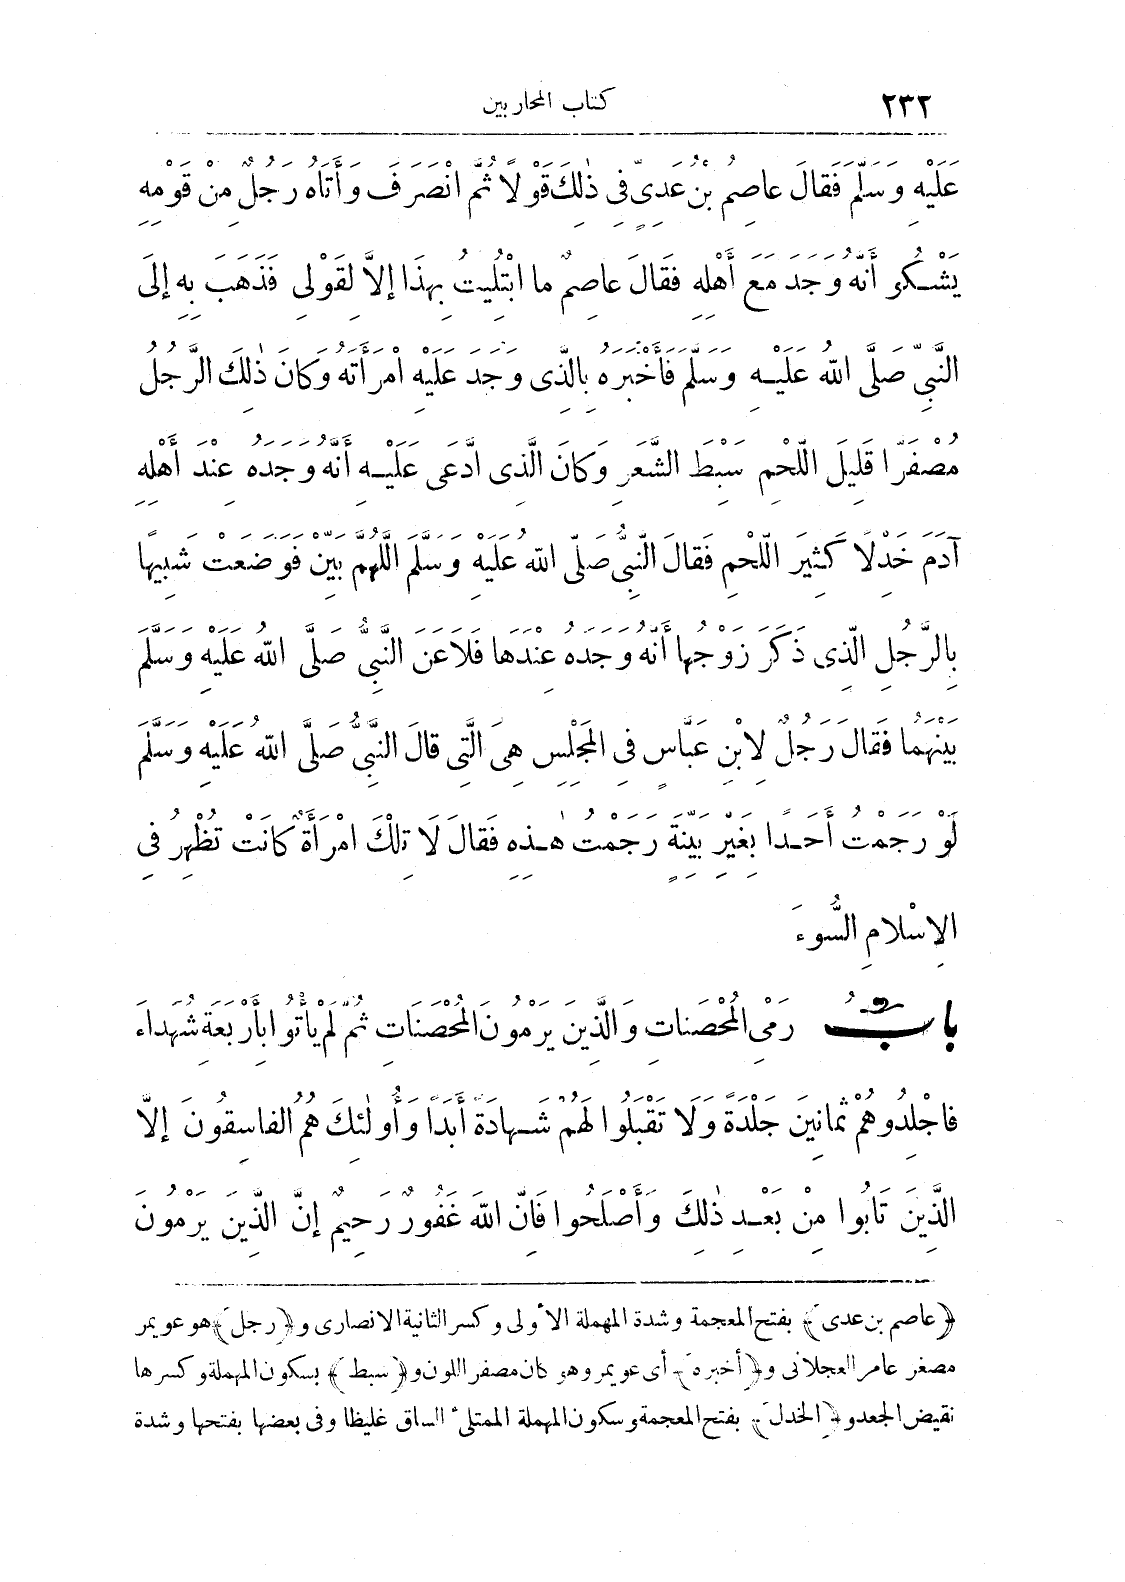 ٢٣٢ كتاب المحاربين
عَلَيْهِ وَسَلَّمَ فَقالَ عاصِمُ بْنُ عَدِيٍّ فى ذٰلِكَ قَوْلًا ثُمَّ انْصَرَفَ وَأَتاهُ رَجُلٌ مِنْ قَوْمِهِ
يَشْكُو أَنَّهُ وَجَدَ مَعَ أَهْلِهِ فَقَالَ عاصِمٌ ما ابْتُلِيتُ بِهذَا إلاَّ لِقَوْلِى فَذَهَبَ بِهِ إلَى
النَّبِيِّ صَلَّى اللّٰهُ عَلَيْهِ وَسَلَّمَ فَأَخْبَرَهُ بِالَّذِى وَجَدَ عَلَيْهِ امْرَأَتَهُ وَكَانَ ذٰلِكَ الرَّجُلُ
مُصْفَرًّا قَلِيلَ اللَّحْمِ سَبْطَ الشَّعَرِ وَكَانَ الَّذِى ادَّعَى عَلَيْهِ أَنَّهُ وَجَدَهُ عِنْدَ أَهْلِهِ
آدَمَ خَدْلًا كَثِيرَ اللَّحْمِ فَقَالَ النَّبِىُّ صَلَّى اللّٰهُ عَلَيْهِ وَسَلَّمَ اللَّهُمَّ بَيِّنْ فَوَضَعَتْ شَبِيهًا
بِالرَّجُلِ الَّذِى ذَكَرَ زَوْجُها أَنَّهُ وَجَدَهُ عِنْدَهَا فَلَاعَنَ النَّبِىُّ صَلَّى اللّٰهُ عَلَيْهِ وَسَلَّمَ
بَيْنَهُما فَقَالَ رَجُلٌ لِابْنِ عَبَّاسٍ فِى المَجْلِسِ هِىَ الَّتِى قَالَ النَّبِىُّ صَلَّى اللّٰهُ عَلَيْهِ وَسَلَّمَ
لَوْ رَجَمْتُ أَحَدًا بِغَيْرِ بَيِّنَةٍ رَجَمْتُ هٰذِهِ فَقَالَ لَا تِلْكَ امْرَأَةٌ كَانَتْ تُظْهِرُ فِى
الإِسْلامِ السُّوءَ
بابُ رَمْىِ الْمُحْصَناتِ وَالَّذِينَ يَرْمُونَ الْمُحْصَنَاتِ ثُمَّ لَمْ يَأْتُوا بِأَرْبَعَةِ شُهَدَاءَ
فَاجْلِدُوهُمْ ثمَانِينَ جَلْدَةً وَلَا تَقْبَلُوا لَهُمْ شَهادَةً أَبَداً وَأُولٰئِكَ هُمُ الفاسِقُونَ إلاَّ
الَّذِينَ تَابُوا مِنْ بَعْدِ ذٰلِكَ وَأَصْلَحُوا فَإِنَّ اللّٰهَ غَفُورٌ رَحِيمٌ إنَّ الَّذِينَ يَرْمُونَ
﴿عاصم بن عدى﴾ بفتح المعجمة وشدة المهملة الأولى وكسر الثانية الانصارى و﴿رجل﴾ هو عويمر
مصغر عامر العجلانى و﴿أخبره﴾ أى عويمر وهو كان مصفر اللون و﴿سبط﴾ بسكون المهملة وكسرها
نقيض الجعد و﴿الخدل﴾ بفتح المعجمة وسكون المهملة الممتلئ الساق غليظا وفى بعضها بفتحها وشدة